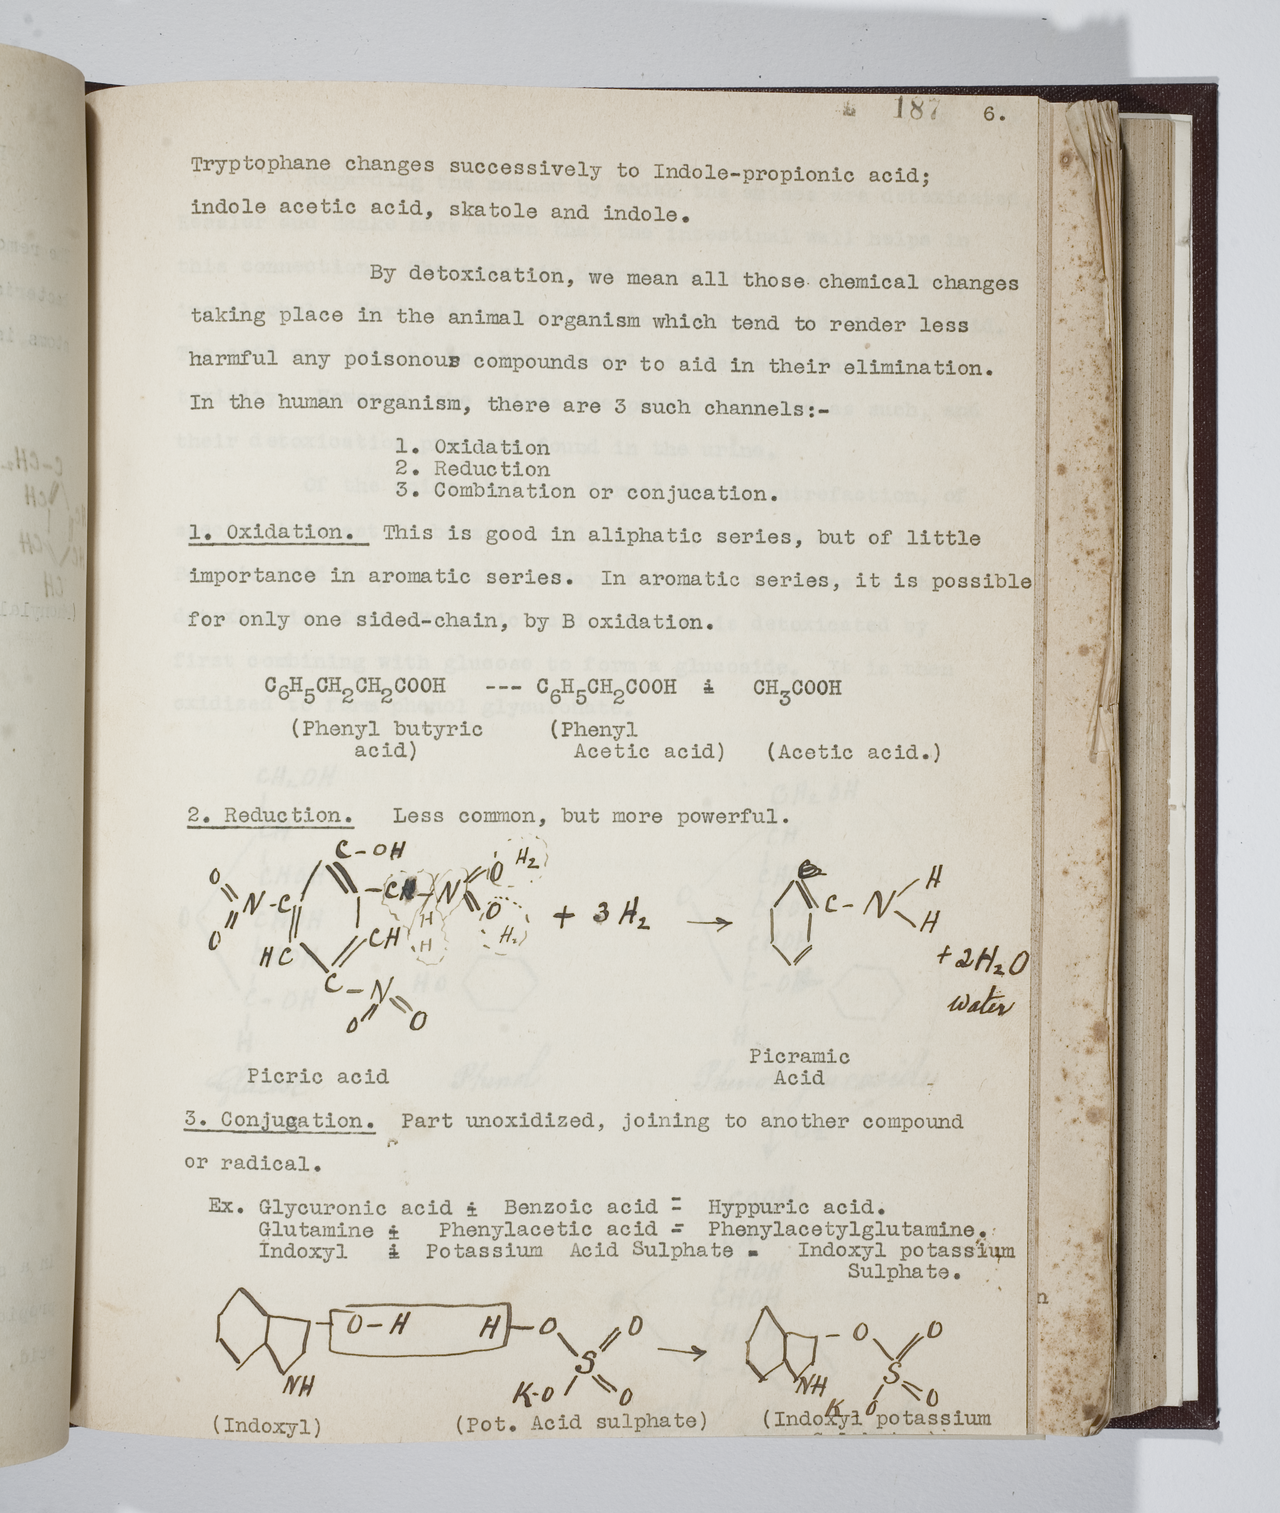 187 6.
Tryptophane changes successively to Indole-propionic acid;
indole acetic acid, skatole and indole.
By detoxication, we mean all those chemical changes
taking place in the animal organism which tend to render less
harmful any poisonous compounds or to aid in their elimination.
In the human organism, there are 3 such channels:-
1. Oxidation
2. Reduction
3. Combination or conjucation.
1. Oxidation. This is good in aliphatic series, but of little
importance in aromatic series. In aromatic series, it is possible
for only one sided-chain, by B oxidation.
C6H5CH2CH2COOH --- C6H5CH2COOH + CH3COOH
(Phenyl butyric (Phenyl
acid) Acetic acid) (Acetic acid.)
2. Reduction. Less common, but more powerful.
C-OH
O H2
O N-C -CH-N O
O H H2 + 3H2 → C- N H H
HC CH H
C-N O O
+ 2H2O
water
Picramic
Picric acid Acid
3. Conjugation. Part unoxidized, joining to another compound
or radical.
Ex. Glycuronic acid + Benzoic acid = Hyppuric acid.
Glutamine + Phenylacetic acid = Phenylacetylglutamine.
Indoxyl + Potassium Acid Sulphate = Indoxyl potassium
Sulphate.
O-H H-O O → -O O
NH S NH S
K-O O K O O
(Indoxyl) (Pot. Acid sulphate) (Indoxyl potassium